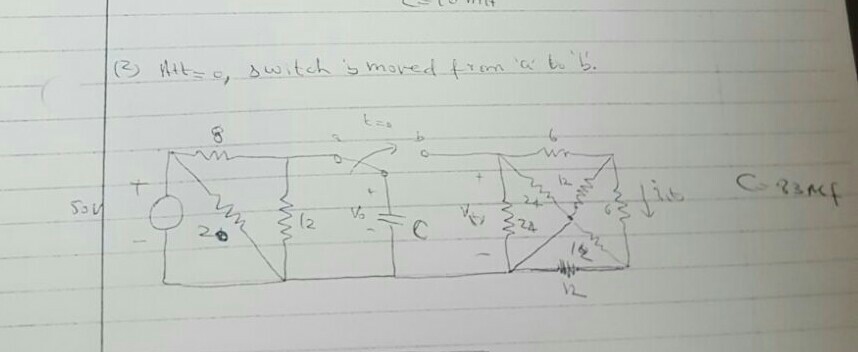 (2) At t=0, switch is moved from 'a' to 'b'.
t=0
8
a
b
6
+
50V
-
20
12
+
V₀
-
C
+
V(t)
-
24
24
12
6
i(t)
12
12